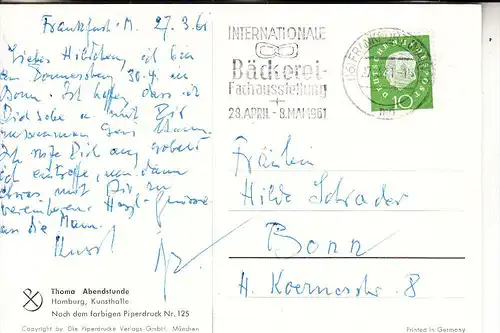 Frankfurt M. 27.3.61
Liebes Hildchen, ich bin
am Donnerstag 30.4. in
Bonn. Ich hoffen dass ich
Dich sehe u. mit Dir
zusammen sein kann.
Ich rufe Dich an, sobald
ich eintreffe, um dann
etwas mit Dir zu
vereinbaren. Herzl. Grüsse
an die Mama.
INTERNATIONALE
Bäckerei-
Fachausstellung
28. APRIL - 8. MAI 1961
DEUTSCHE BUNDESPOST
10
Fräulein
Hilde Schrader
Bonn
H. Koernerstr. 8
Thoma Abendstunde
Hamburg, Kunsthalle
Nach dem farbigen Piperdruck Nr. 125
Copyright by Die Piperdrucke Verlags-GmbH. München
Printed in Germany